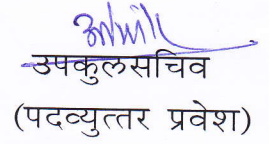 उपकुलसचिव
(पदव्युत्तर प्रवेश)